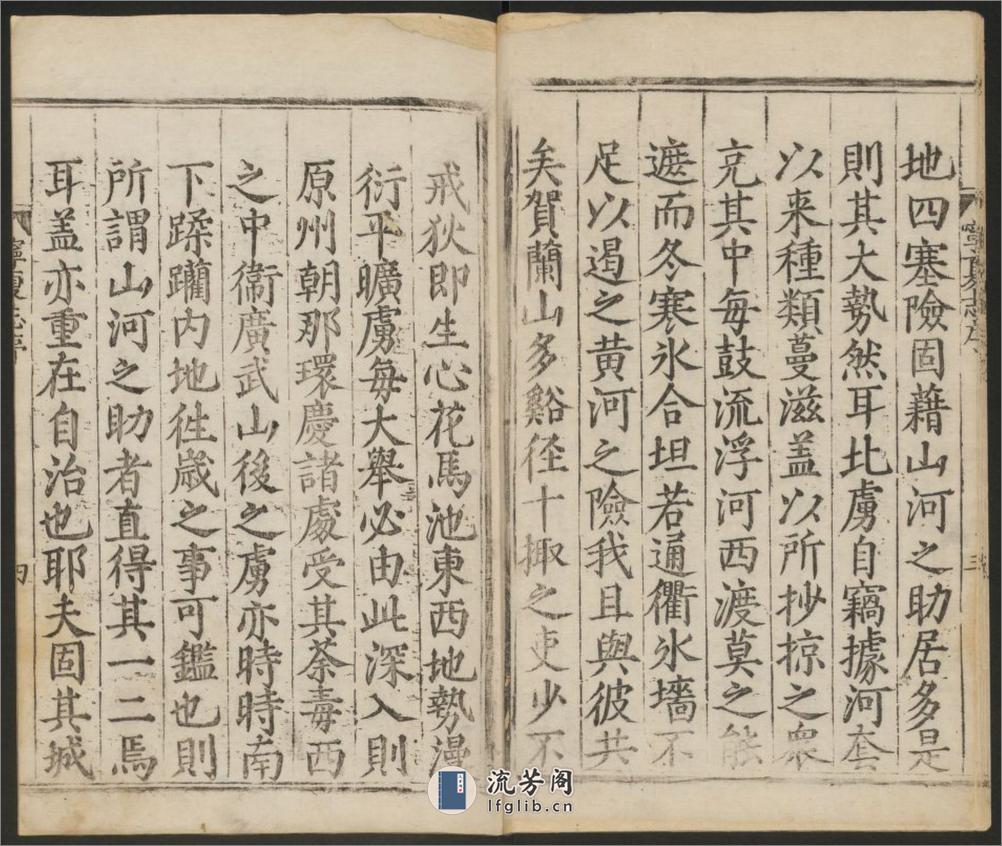 寧夏志序
三
地四塞險固藉山河之助居多是
則其大勢然耳北虜自竊據河套
以来種類蔓滋盖以所抄掠之衆
充其中每鼓流浮河西渡莫之能
遮而冬寒氷合坦若通衢氷墻不
足以遏之黄河之險我且與彼共
矣賀蘭山多谿徑十掫之吏少不
戒狄即生心花馬池東西地勢漫
衍平曠虜每大舉必由此深入則
原州朝那環慶諸處受其荼毒西
之中衛廣武山後之虜亦時時南
下蹂躪内地徃歲之事可鑑也則
所謂山河之助者直得其一二焉
耳盖亦重在自治也耶夫固其城
寧夏志序
四
流芳阁
lfglib.cn